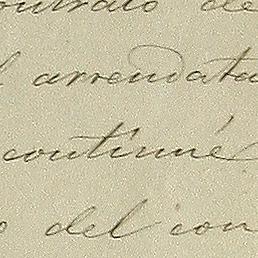 contrato de
l arrendata
continué
o del con